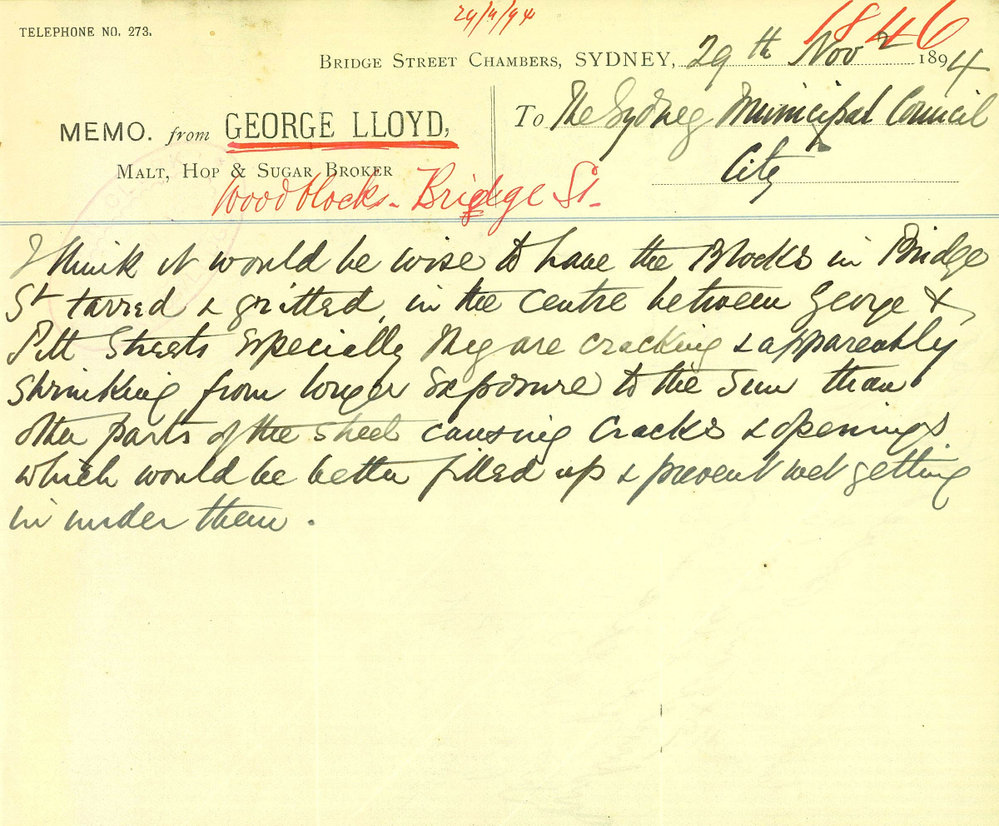 29/11/94
1846
TELEPHONE NO. 273.
BRIDGE STREET CHAMBERS, SYDNEY, 29th Novr 1894
MEMO. from GEORGE LLOYD,
MALT, HOP & SUGAR BROKER
To The Sydney Municipal Council
City
Woodblocks - Bridge St.
I think it would be wise to have the Blocks in Bridge
St tarred & gritted, in the centre between George &
Pitt Streets Especially they are cracking & appareably
shrinking from longer Exposure to the Sun than
other parts of the Street causing Cracks & openings
which would be better filled up & prevent wet getting
in under them.